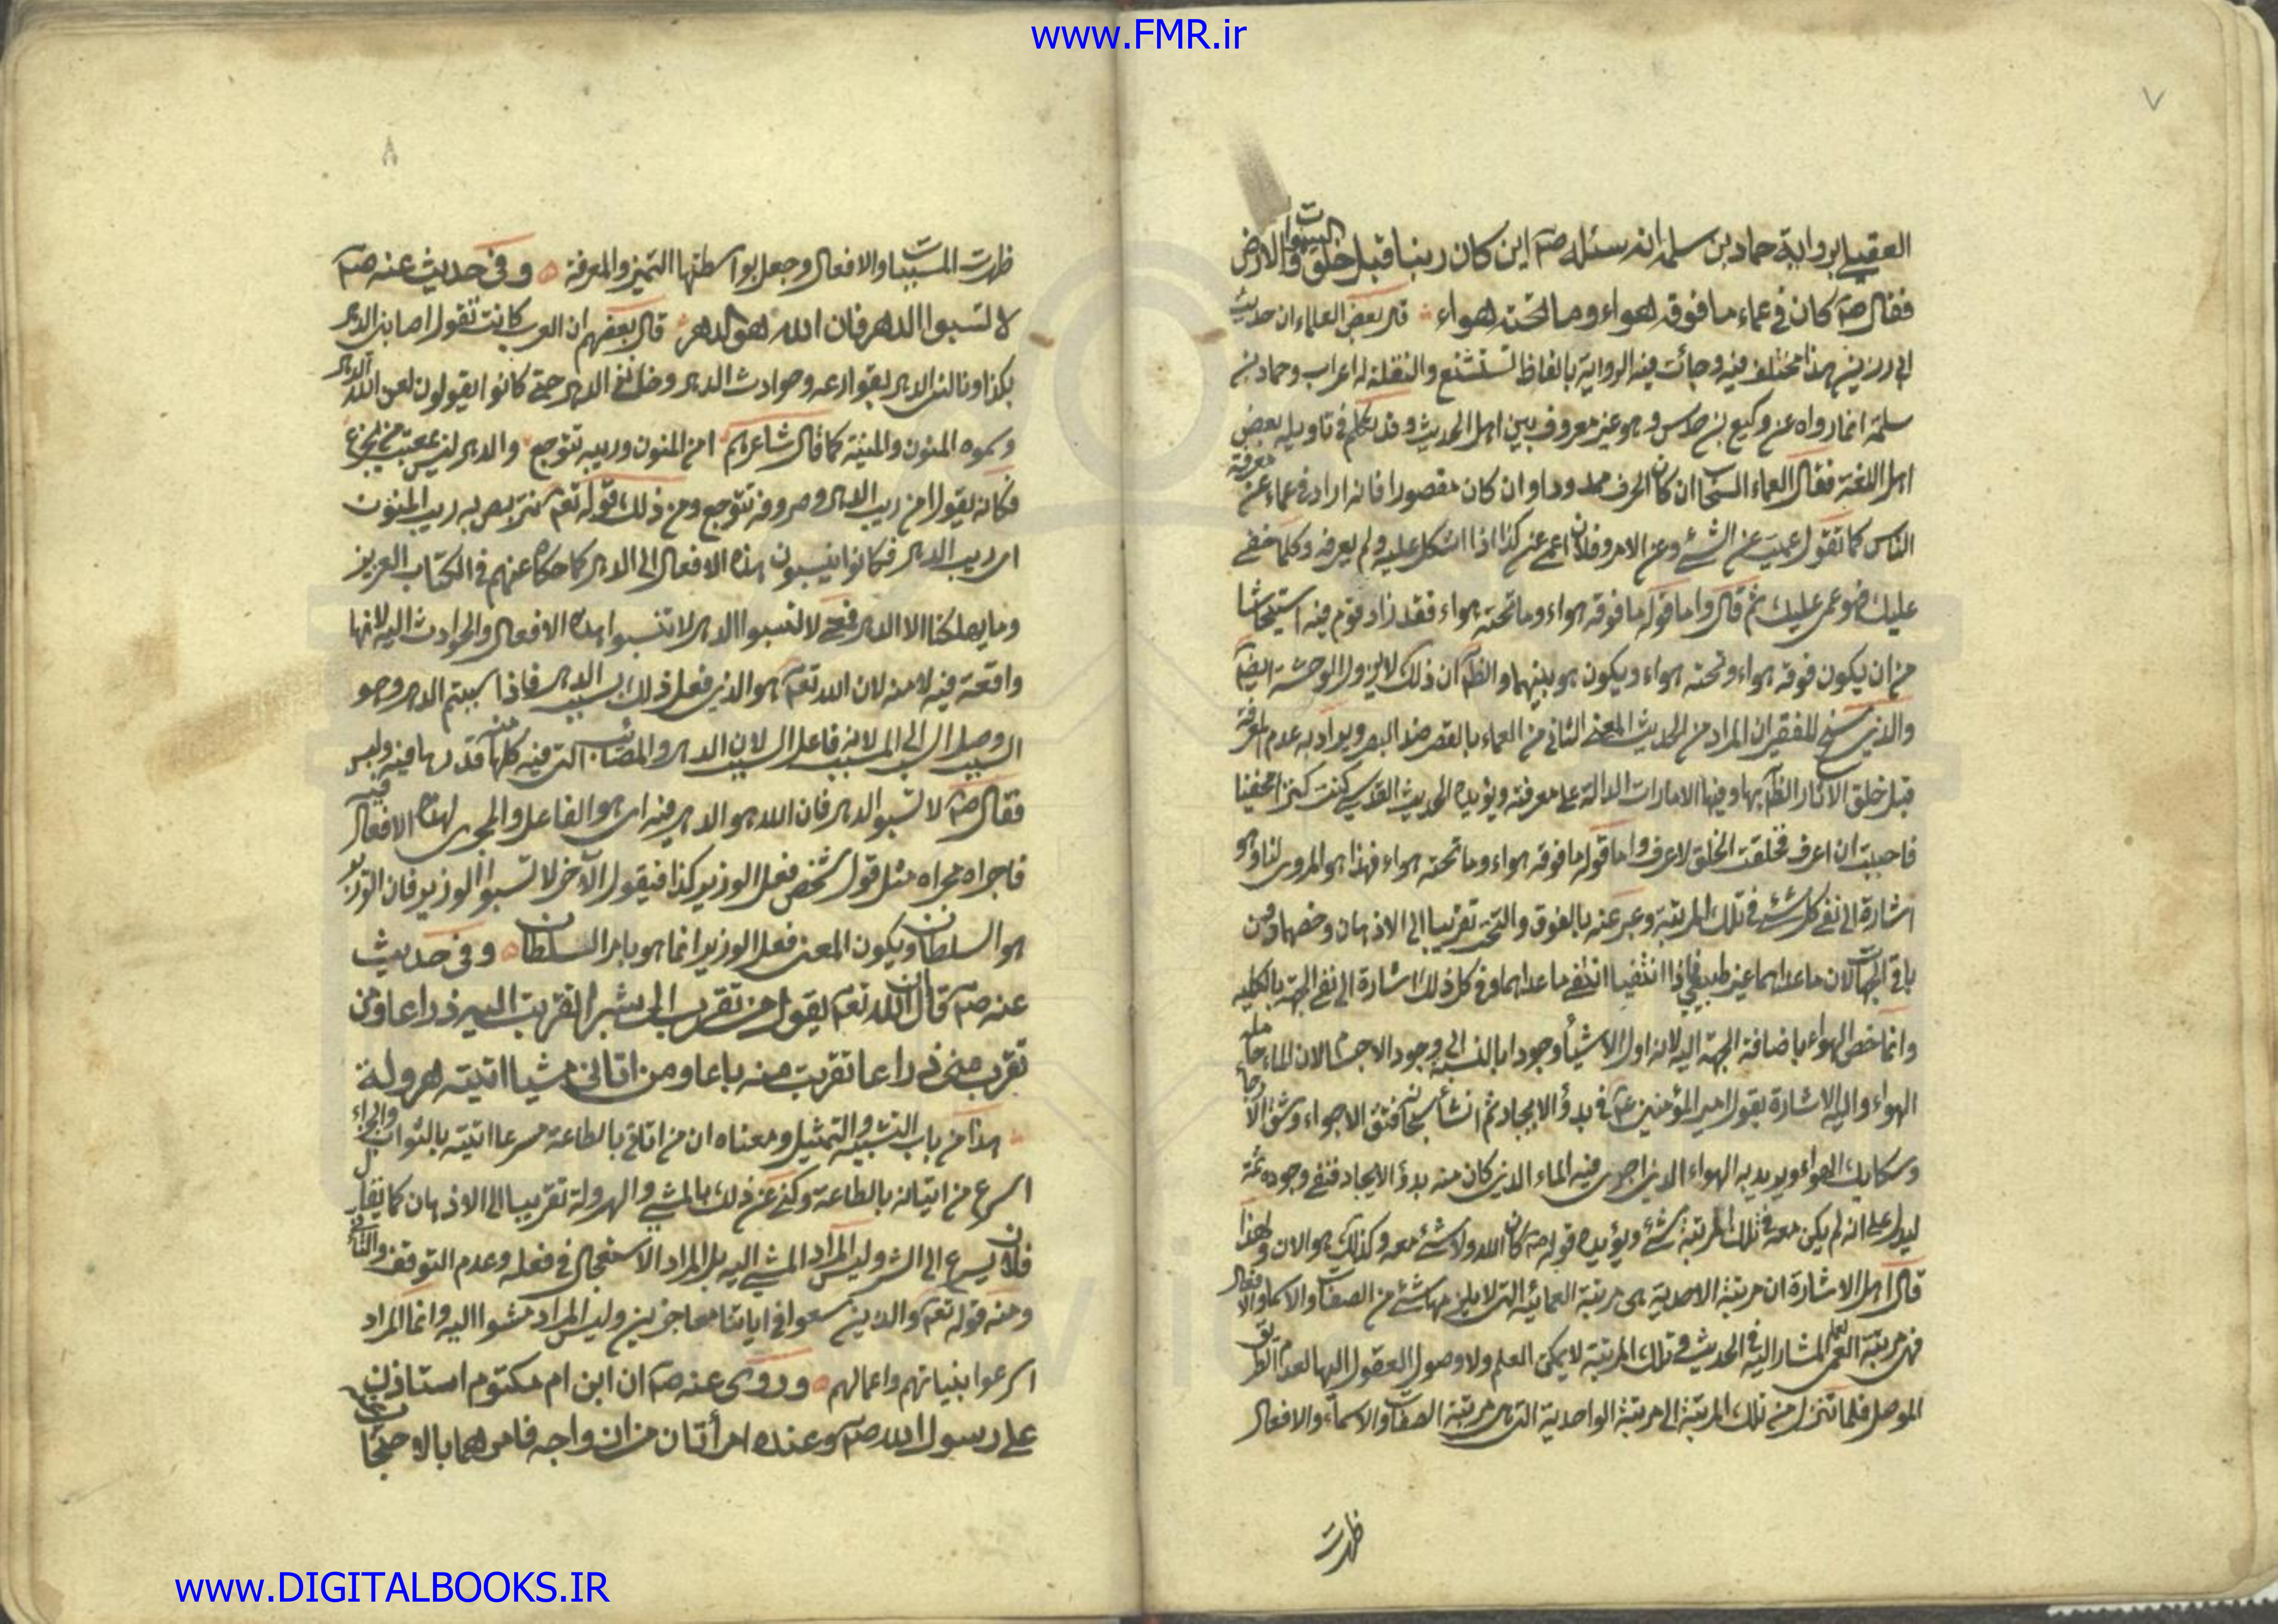 www.FMR.ir
٧
العقيلي برواية حماد بن سلمة انه سئله صم اين كان ربنا قبل خلق السموات والارض
فقال صم كان في عماء ما فوقه هواء وما تحته هواء قال بعض العلماء ان حديث
ابي رزين هذا مختلف فيه وجائت فيه الرواية بالفاظ تستشنع والنقلة له اعراب وحماد بن
سلمة انما رواه عن وكيع بن حدس وهو غير معروف بين اهل الحديث وقد تكلم في تاويله بعض
اهل اللغة فقال العماء السحاب ان كان الحرف ممدودا وان كان مقصورا فانه اراد في عماء عن معرفة
الناس كما تقول عميت عن الشئ وعن الامر وفلان اعمى عن كذا اذا اشكل عليه ولم يعرفه وكلما خفى
عليك فهو عمى عليك ثم قال واما قوله ما فوقه هواء وما تحته هواء فقد زاد قوم فيه استيحاشا
من ان يكون فوقه هواء وتحته هواء ويكون هو بينهما والظ ان ذلك لا يزول الوحشة ايضا
والذي سنح للفقير ان المراد من الحديث المعنى الثاني من العماء بالقصر ضد البصر ويراد به عدم المعرفة
قبل خلق الآثار الظاهر بها وفيها الامارات الدالة على معرفته ويؤيده الحديث القدسي كنت كنزا مخفيا
فاحببت ان اعرف فخلقت الخلق لاعرف واما قوله ما فوقه هواء وما تحته هواء فهذا هو المروى لنا وهو
اشارة الى نفى كل شئ في تلك المرتبة وعبر عنه بالفوق والتحت تقريبا الى الاذهان وخصهما من
باقي الجهات لان ما عداهما غير طبيعي فاذا انتفيا انتفى ما عداهما وفي كل ذلك اشارة الى نفى الجهة بالكلية
وانما خص الهواء باضافة الجهة اليه لانه اول الاشياء وجودا بالنسبة الى وجود الاجسام لان الماء حامله
الهواء واليه الاشارة بقول امير المؤمنين ع في بدؤ الايجاد ثم انشأ سبحانه فتق الاجواء وشق الارجاء
وسكائك الهواء ويريد به الهواء الذي اجرى فيه الماء الذي كان منه بدؤ الايجاد فنفى وجوده ثمة
ليدل على انه لم يكن معه في تلك المرتبة شئ ويؤيده قوله صم كان الله ولا شئ معه وكذلك هو الان ولهذا
قال اهل الاشارة ان مرتبة الاحدية هي مرتبة العمائية التي لا يلزمها شئ من الصفات والاسماء والافعال
فهى مرتبة العمى المشار اليه في الحديث وتلك المرتبة لا يمكن العلم ولا وصول العقول اليها لعدم الطريق
الموصل فلما تنزل من تلك المرتبة الى مرتبة الواحدية التي هي مرتبة الصفات والاسماء والافعال
ظهرت
٨
ظهرت المسببات والافعال وجعل بواسطتها التميز والمعرفة وفي حديث عنه صم
لا تسبوا الدهر فان الله هو الدهر قال بعضهم ان العرب كانت تقول اصابني الدهر
بكذا ونالتنى الدهر بقوارعه وحوادث الدهر حتى كانوا يقولون لعن الله الدهر
وسموه المنون والمنية كما قال شاعرهم امن المنون وريبه تتوجع والدهر ليس بمعتب من يجزع
فكانه يقول امن ريب الدهر وصروفه تتوجع ومن ذلك قوله تعم نتربص به ريب المنون
اى ريب الدهر فكانوا ينسبون هذه الافعال الى الدهر كما حكاه عنهم في الكتاب العزيز
وما يهلكنا الا الدهر فمعنى لا تسبوا الدهر لا تنسبوا هذه الافعال والحوادث اليه لانها
واقعة فيه لا منه لان الله تعم هو الذي فعل ذلك بسبب الدهر فاذا سببتم الدهر وهو
السبب وصل السب الى المسبب لانه فاعل السبب لان الدهر والمصائب التي فيه كلها منه قدرها فيه وليس
فقال صم لا تسبوا الدهر فان الله هو الدهر فيه اى هو الفاعل والمجرى لهذه الافعال فيه
فاجراه مجراه مثل قول شخص فعل الوزير كذا فيقول الآخر لا تسبوا الوزير فان الوزير
هو السلطان ويكون المعنى فعل الوزير انما هو بامر السلطان وفي حديث
عنه صم قال ان الله تعم يقول من تقرب الى بشبر اتقربت اليه ذراعا ومن
تقرب منى ذراعا تقربت منه باعا ومن اتانى مشيا اتيته هرولة
هذا من باب التشبيه والتمثيل ومعناه ان من اتانى بالطاعة مسرعا اتيته بالثواب والجزاء
اسرع من اتيانه بالطاعة وكنى عن ذلك بالمشي والهرولة تقريبا الى الاذهان كما يقال
فلان يسرع الى الشر وليس المراد المشي اليه بل المراد الاستعجال في فعله وعدم التوقف والتأنى
ومنه قوله تعم والذين سعوا في اياتنا معاجزين وليس المراد مشوا اليه وانما المراد
اسرعوا بنياتهم واعمالهم وروى عنه صم ان ابن ام مكتوم استاذن
على رسول الله صم وعنده امرأتان من ازواجه فامرهما بالاحتجاب
www.DIGITALBOOKS.IR